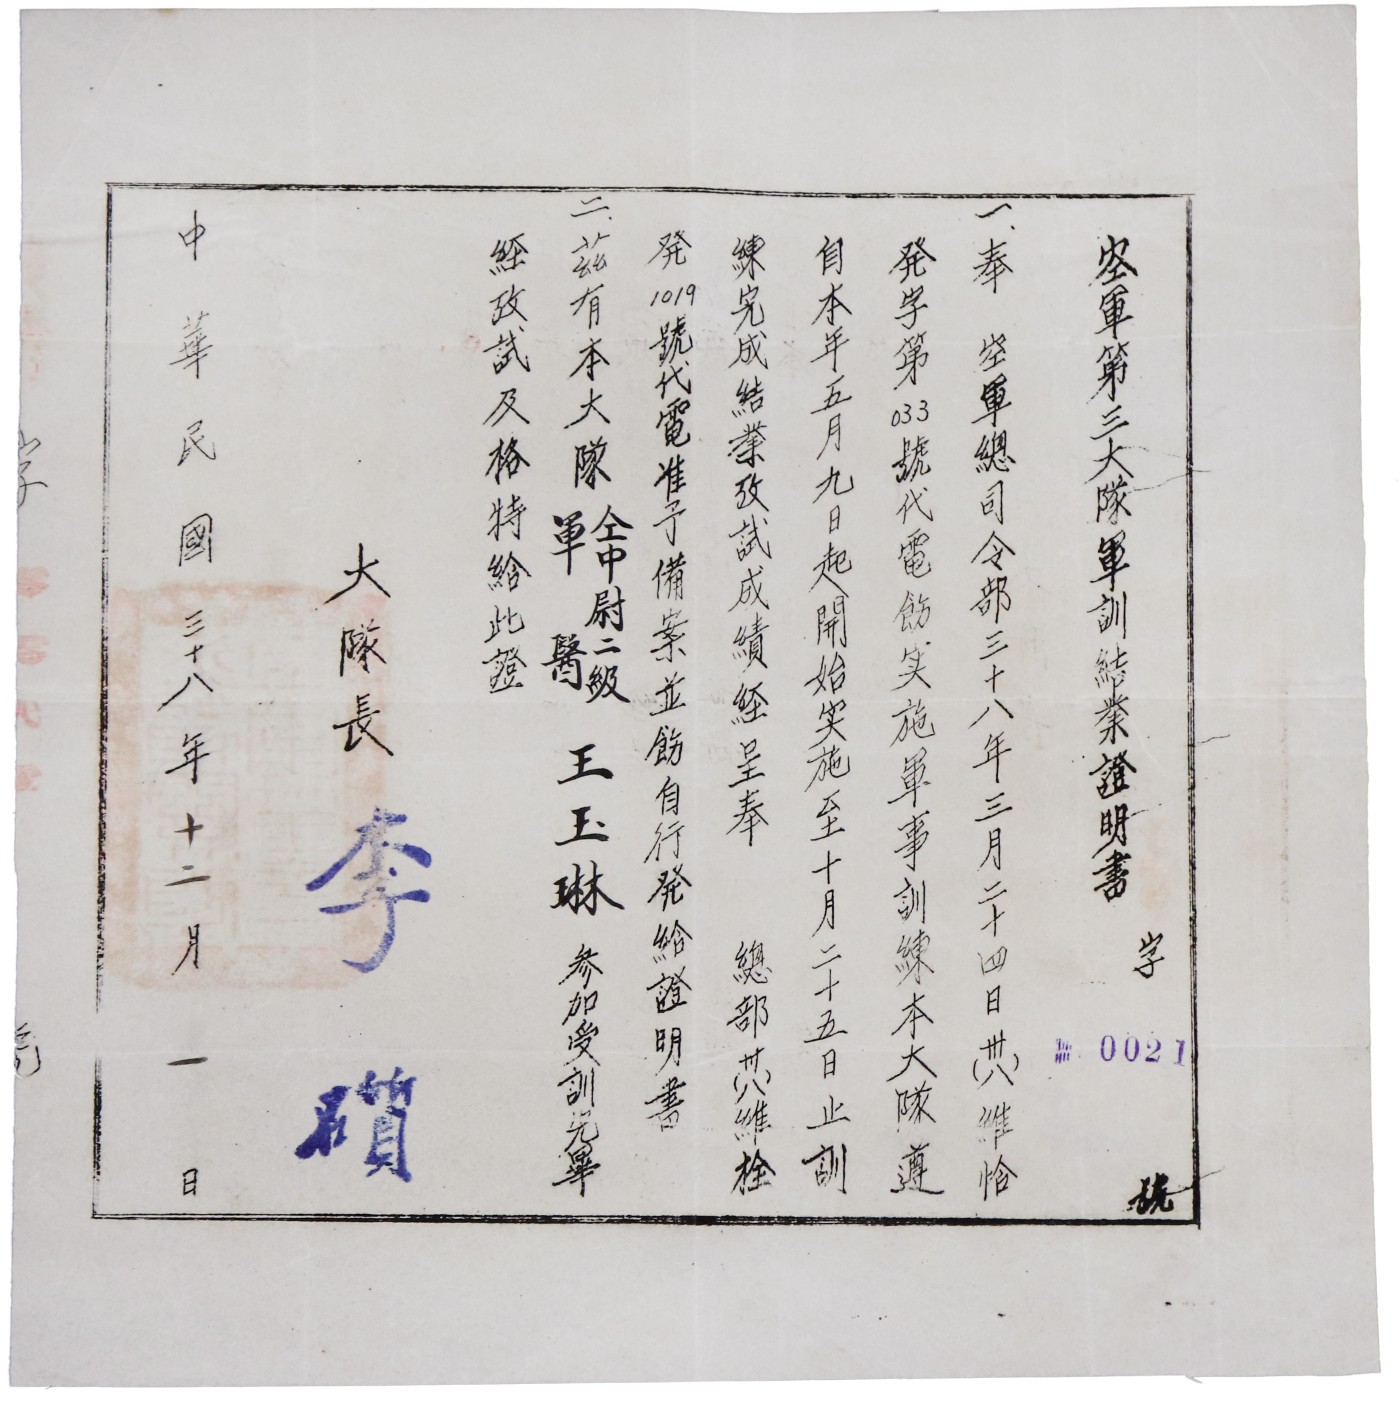 空軍第三大隊軍訓結業證明書
字
0021
號
一、奉 空軍總司令部三十八年三月二十四日卅(八)維恰
発字第033號代電飭実施軍事訓練本大隊遵
自本年五月九日起開始実施至十月二十五日止訓
練完成結業攷試成績経呈奉 總部卅(八)維栓
発1019號代電准予備案並飭自行発給證明書
二、茲有本大隊
仝中尉二級
軍醫
王玉琳 參加受訓完畢
経攷試及格特給此證
大隊長 李礩
中華民國三十八年十二月一日